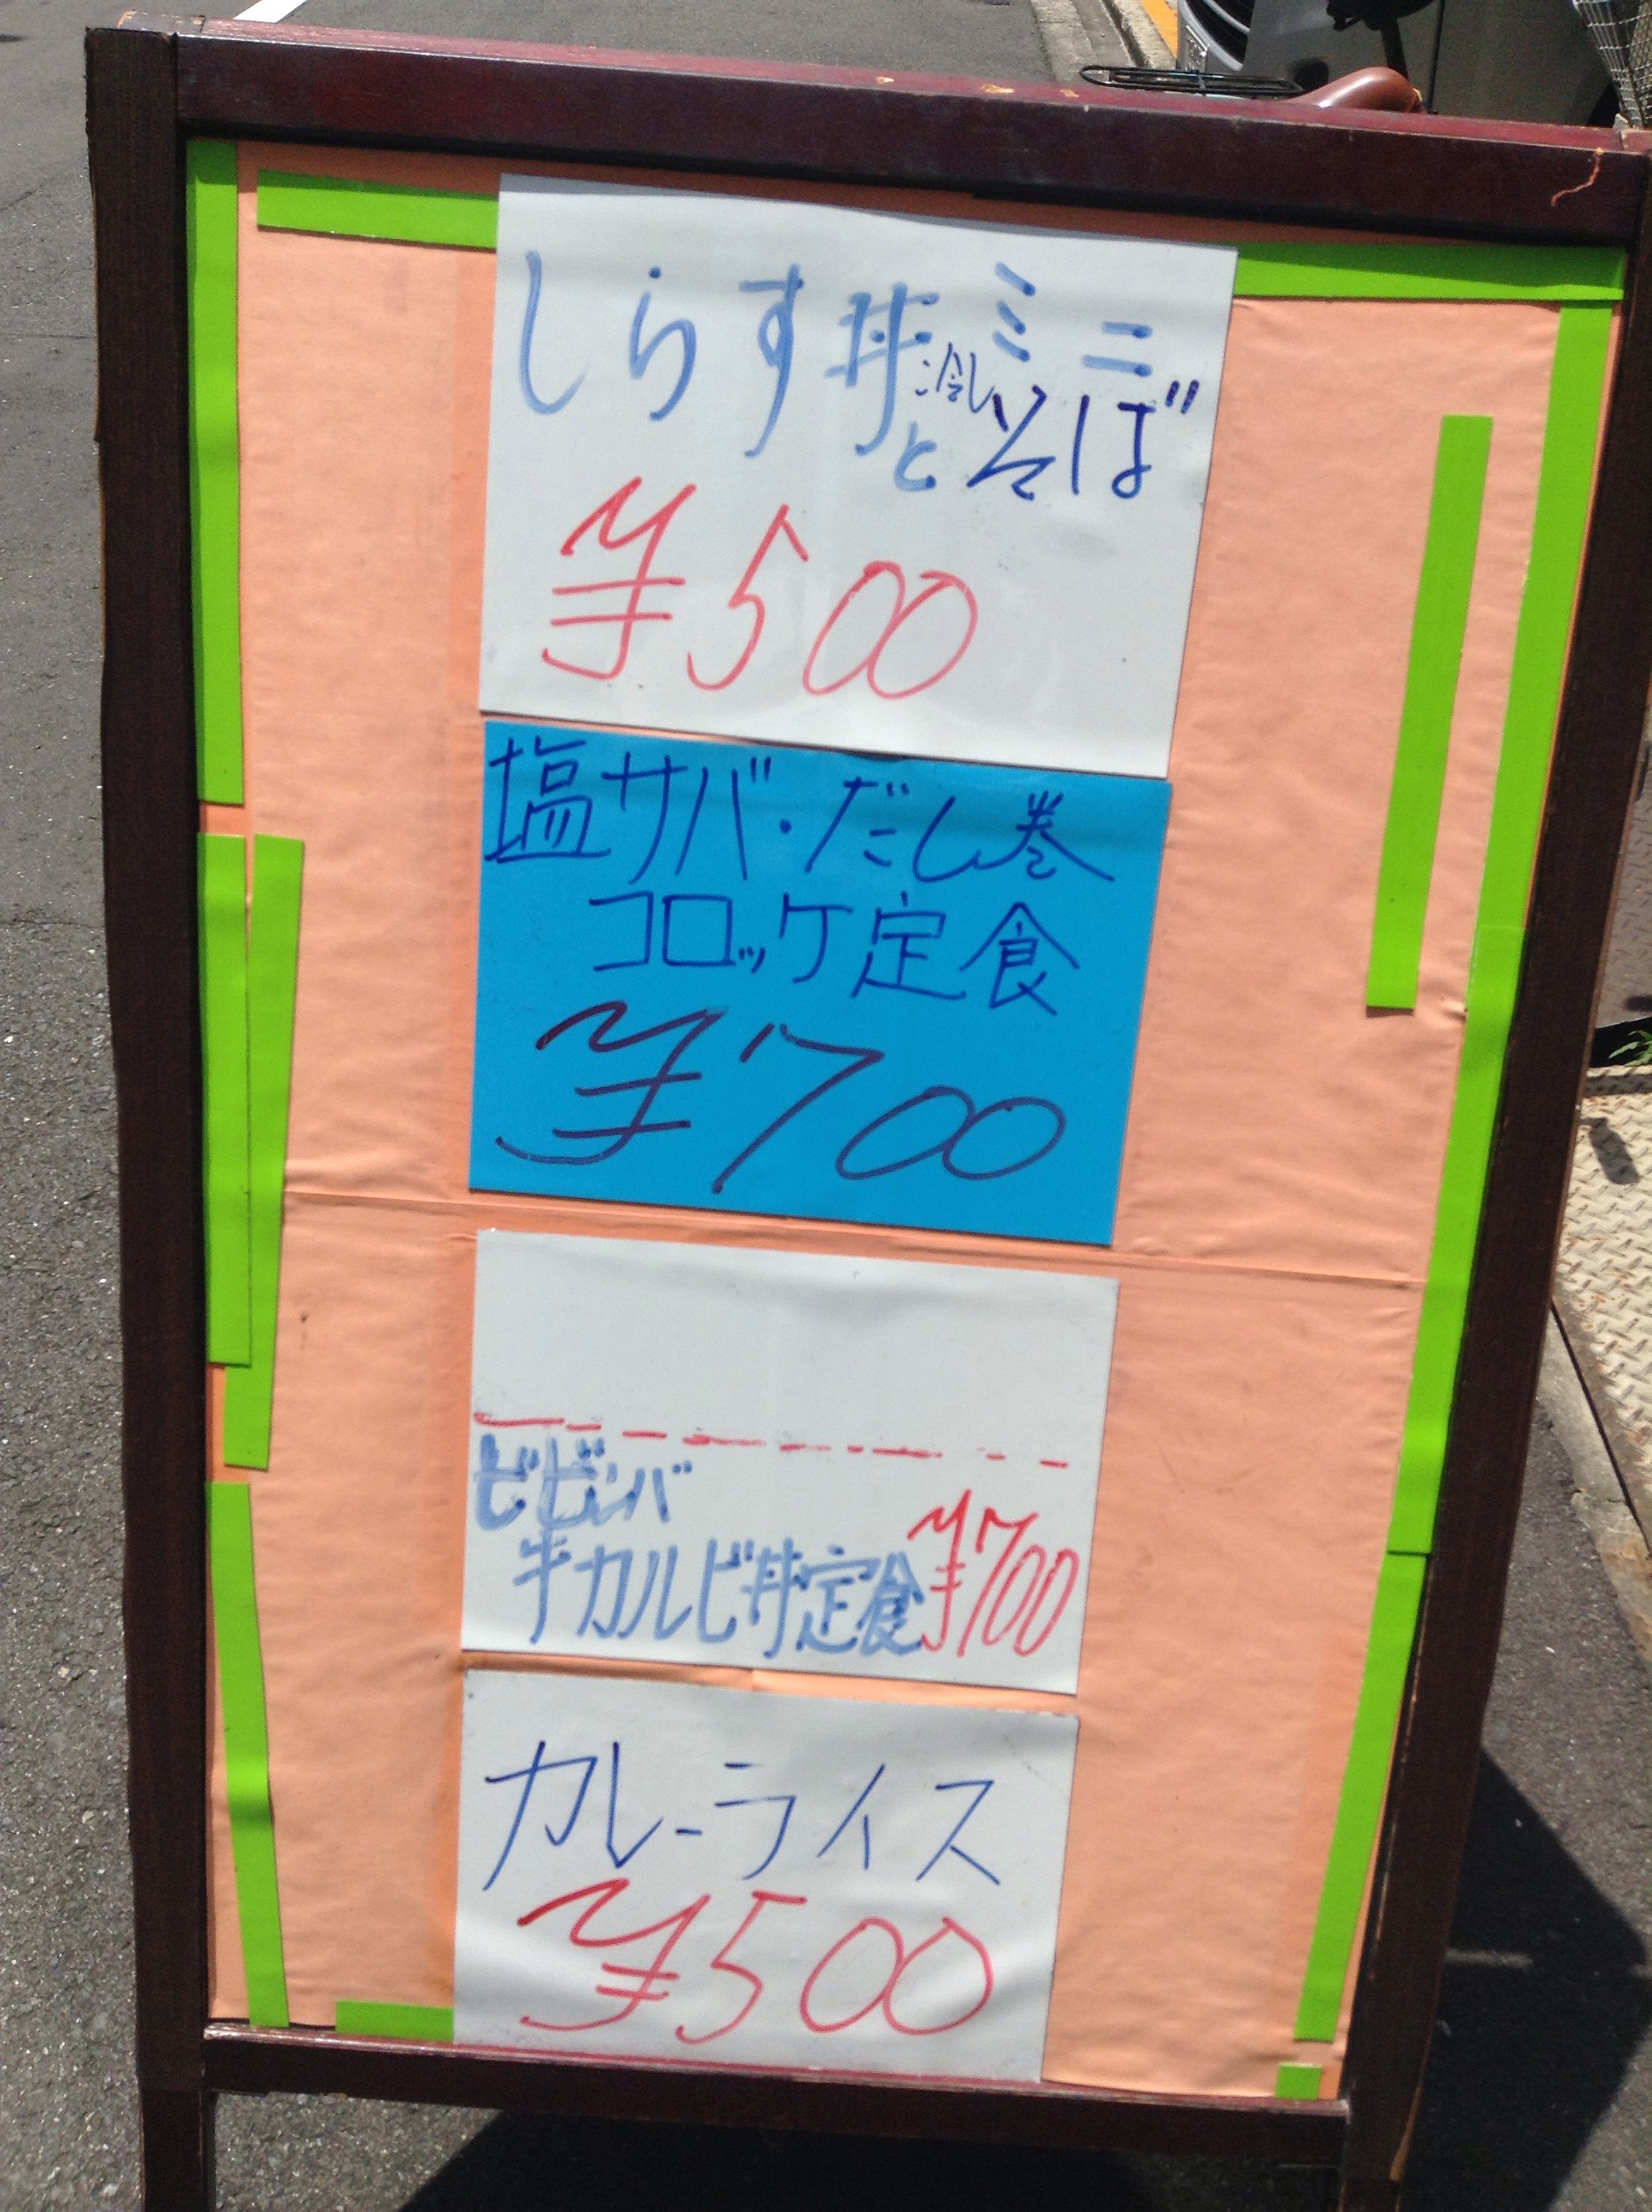 しらす丼 ミニ
と冷しそば
¥500
塩サバ・だし巻
コロッケ定食
¥700
ビビンバ
牛カルビ丼定食¥700
カレーライス
¥500